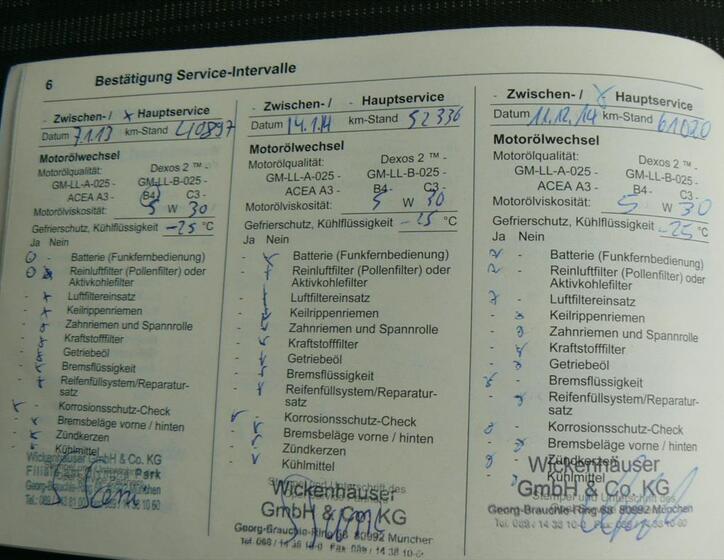 6 Bestätigung Service-Intervalle
- Zwischen- / x Hauptservice
Datum 7.1.13 km-Stand 40897
Motorölwechsel
Motorölqualität: Dexos 2 ™ -
GM-LL-A-025 - GM-LL-B-025 -
ACEA A3 - B4 - C3 -
Motorölviskosität: 5 W 30
Gefrierschutz, Kühlflüssigkeit -25 °C
Ja Nein
Batterie (Funkfernbedienung)
Reinluftfilter (Pollenfilter) oder
Aktivkohlefilter
Luftfiltereinsatz
Keilrippenriemen
Zahnriemen und Spannrolle
Kraftstofffilter
Getriebeöl
Bremsflüssigkeit
Reifenfüllsystem/Reparatur-
satz
Korrosionsschutz-Check
Bremsbeläge vorne / hinten
Zündkerzen
Kühlmittel
Wickenhäuser GmbH & Co. KG
- Zwischen- / - Hauptservice
Datum 14.1.14 km-Stand 52336
Motorölwechsel
Motorölqualität: Dexos 2 ™ -
GM-LL-A-025 - GM-LL-B-025 -
ACEA A3 - B4 - C3 -
Motorölviskosität: 5 W 30
Gefrierschutz, Kühlflüssigkeit -25 °C
Ja Nein
Batterie (Funkfernbedienung)
Reinluftfilter (Pollenfilter) oder
Aktivkohlefilter
Luftfiltereinsatz
Keilrippenriemen
Zahnriemen und Spannrolle
Kraftstofffilter
Getriebeöl
Bremsflüssigkeit
Reifenfüllsystem/Reparatur-
satz
Korrosionsschutz-Check
Bremsbeläge vorne / hinten
Zündkerzen
Kühlmittel
Stempel und Unterschrift des
Wickenhäuser
GmbH & Co. KG
Georg-Brauchle-Ring 68 80992 München
- Zwischen- / x Hauptservice
Datum 11.12.14 km-Stand 61020
Motorölwechsel
Motorölqualität: Dexos 2 ™ -
GM-LL-A-025 - GM-LL-B-025 -
ACEA A3 - B4 - C3 -
Motorölviskosität: 5 W 30
Gefrierschutz, Kühlflüssigkeit -25 °C
Ja Nein
Batterie (Funkfernbedienung)
Reinluftfilter (Pollenfilter) oder
Aktivkohlefilter
Luftfiltereinsatz
Keilrippenriemen
Zahnriemen und Spannrolle
Kraftstofffilter
Getriebeöl
Bremsflüssigkeit
Reifenfüllsystem/Reparatur-
satz
Korrosionsschutz-Check
Bremsbeläge vorne / hinten
Zündkerzen
Kühlmittel
Wickenhäuser
GmbH & Co. KG
Stempel und Unterschrift des
Georg-Brauchle-Ring 68 80992 München